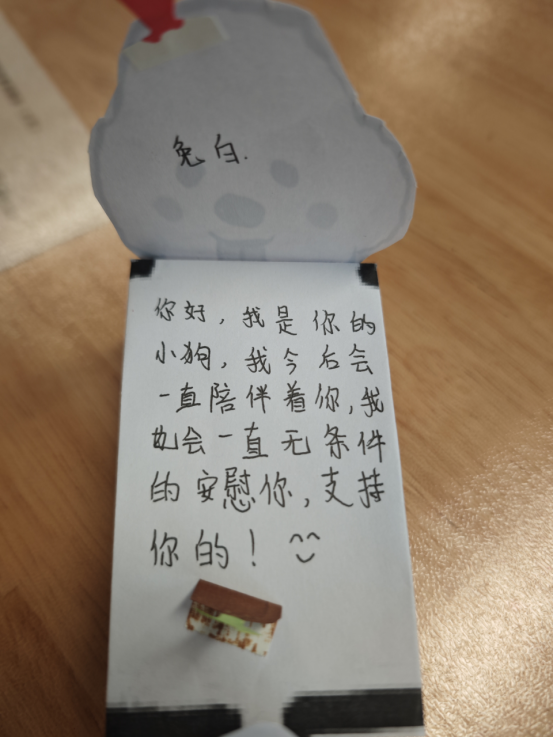 兔白.
你好，我是你的
小狗，我今后会
一直陪伴着你，我
也会一直无条件
的安慰你，支持
你的！